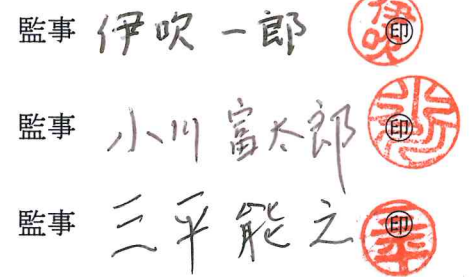 監事 伊吹 一郎 ㊞ 伊吹
監事 小川 富太郎 ㊞
監事 三平 能之 ㊞ 三平